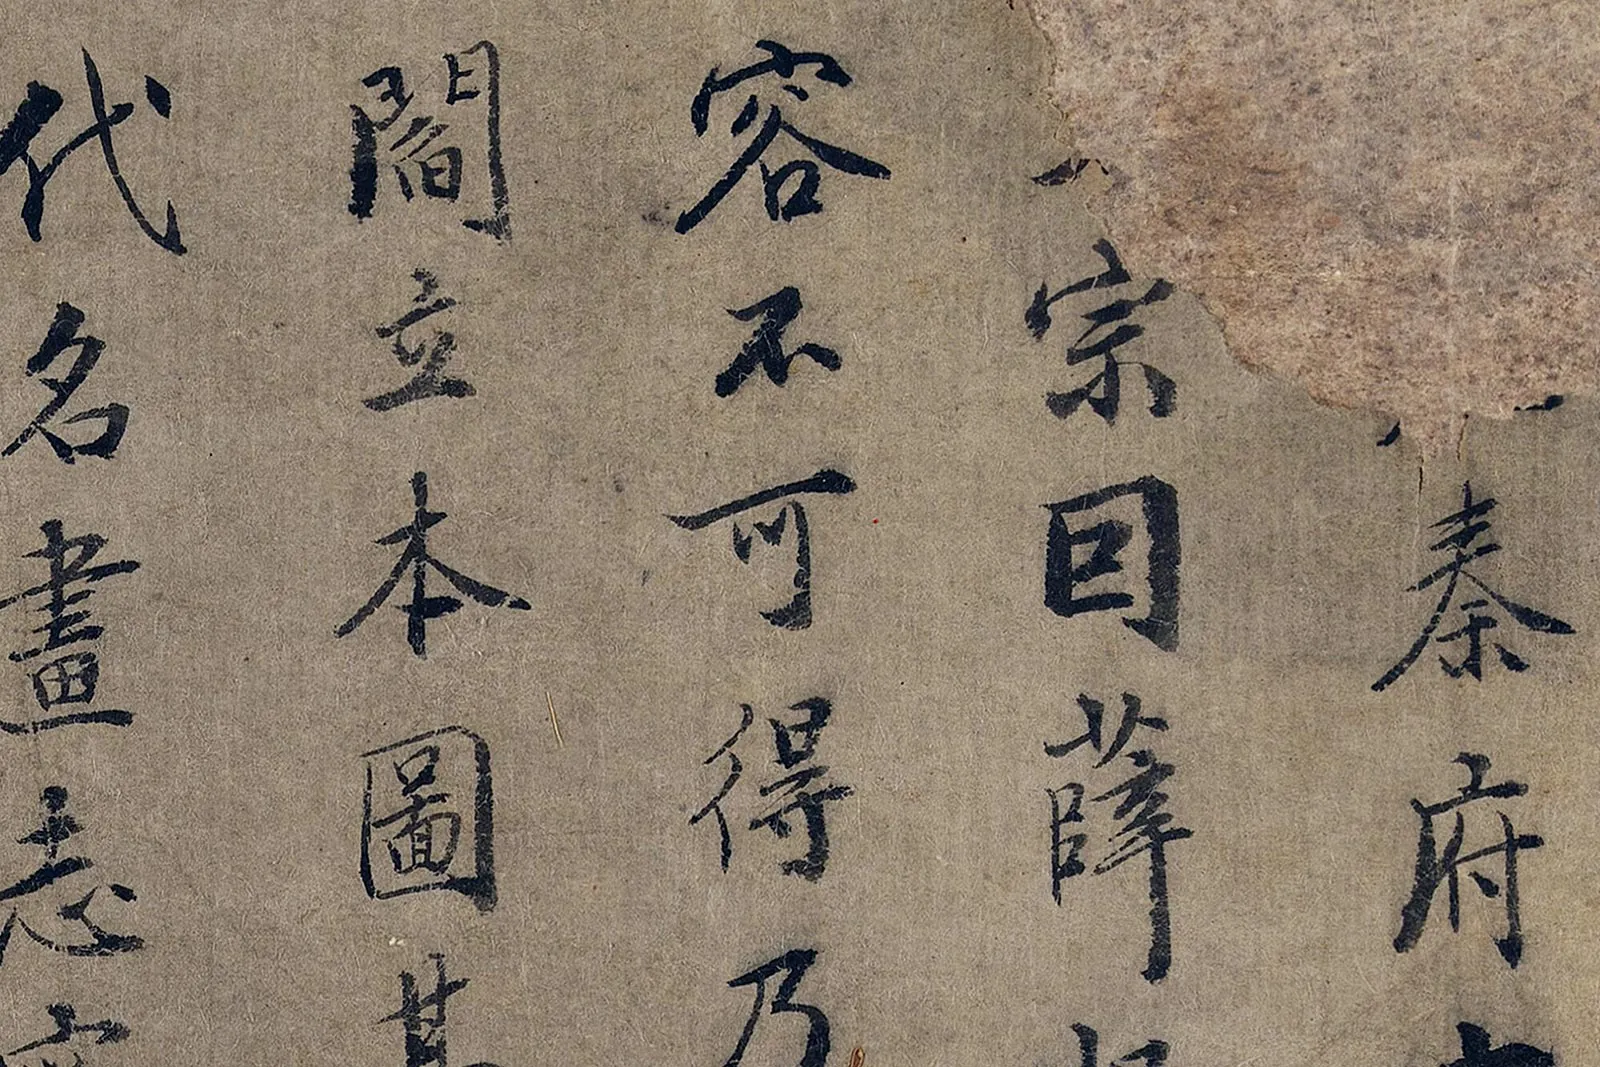 秦府
宗囙薛
容不可得乃
閻立本圖其
代名畫志